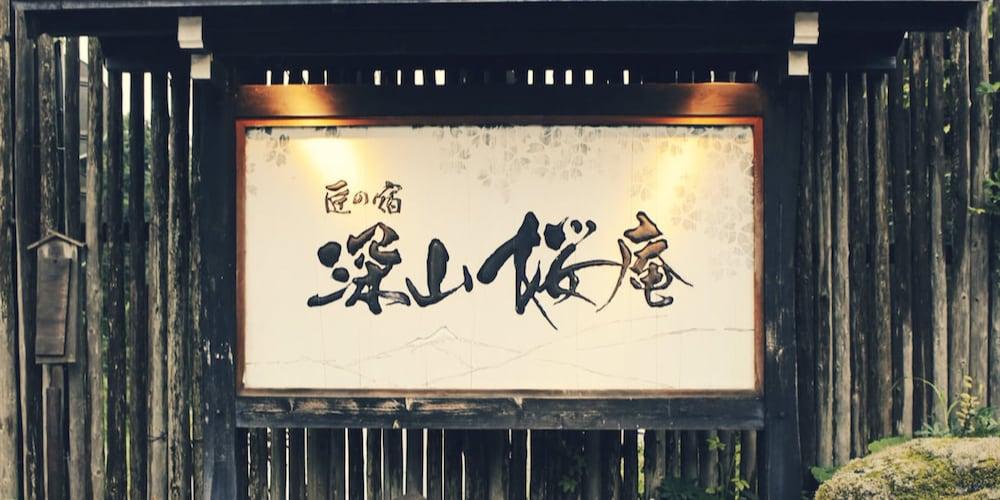 匠の宿
深山桜庵